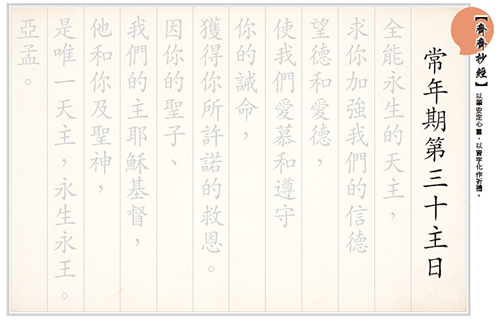 【齊齊抄經】
以筆安定心靈，以習字化作祈禱。
常年期第三十主日
全能永生的天主，
求你加強我們的信德
望德和愛德，
使我們愛慕和遵守
你的誡命，
獲得你所許諾的救恩。
因你的聖子、
我們的主耶穌基督，
他和你及聖神，
是唯一天主，永生永王。
亞孟。